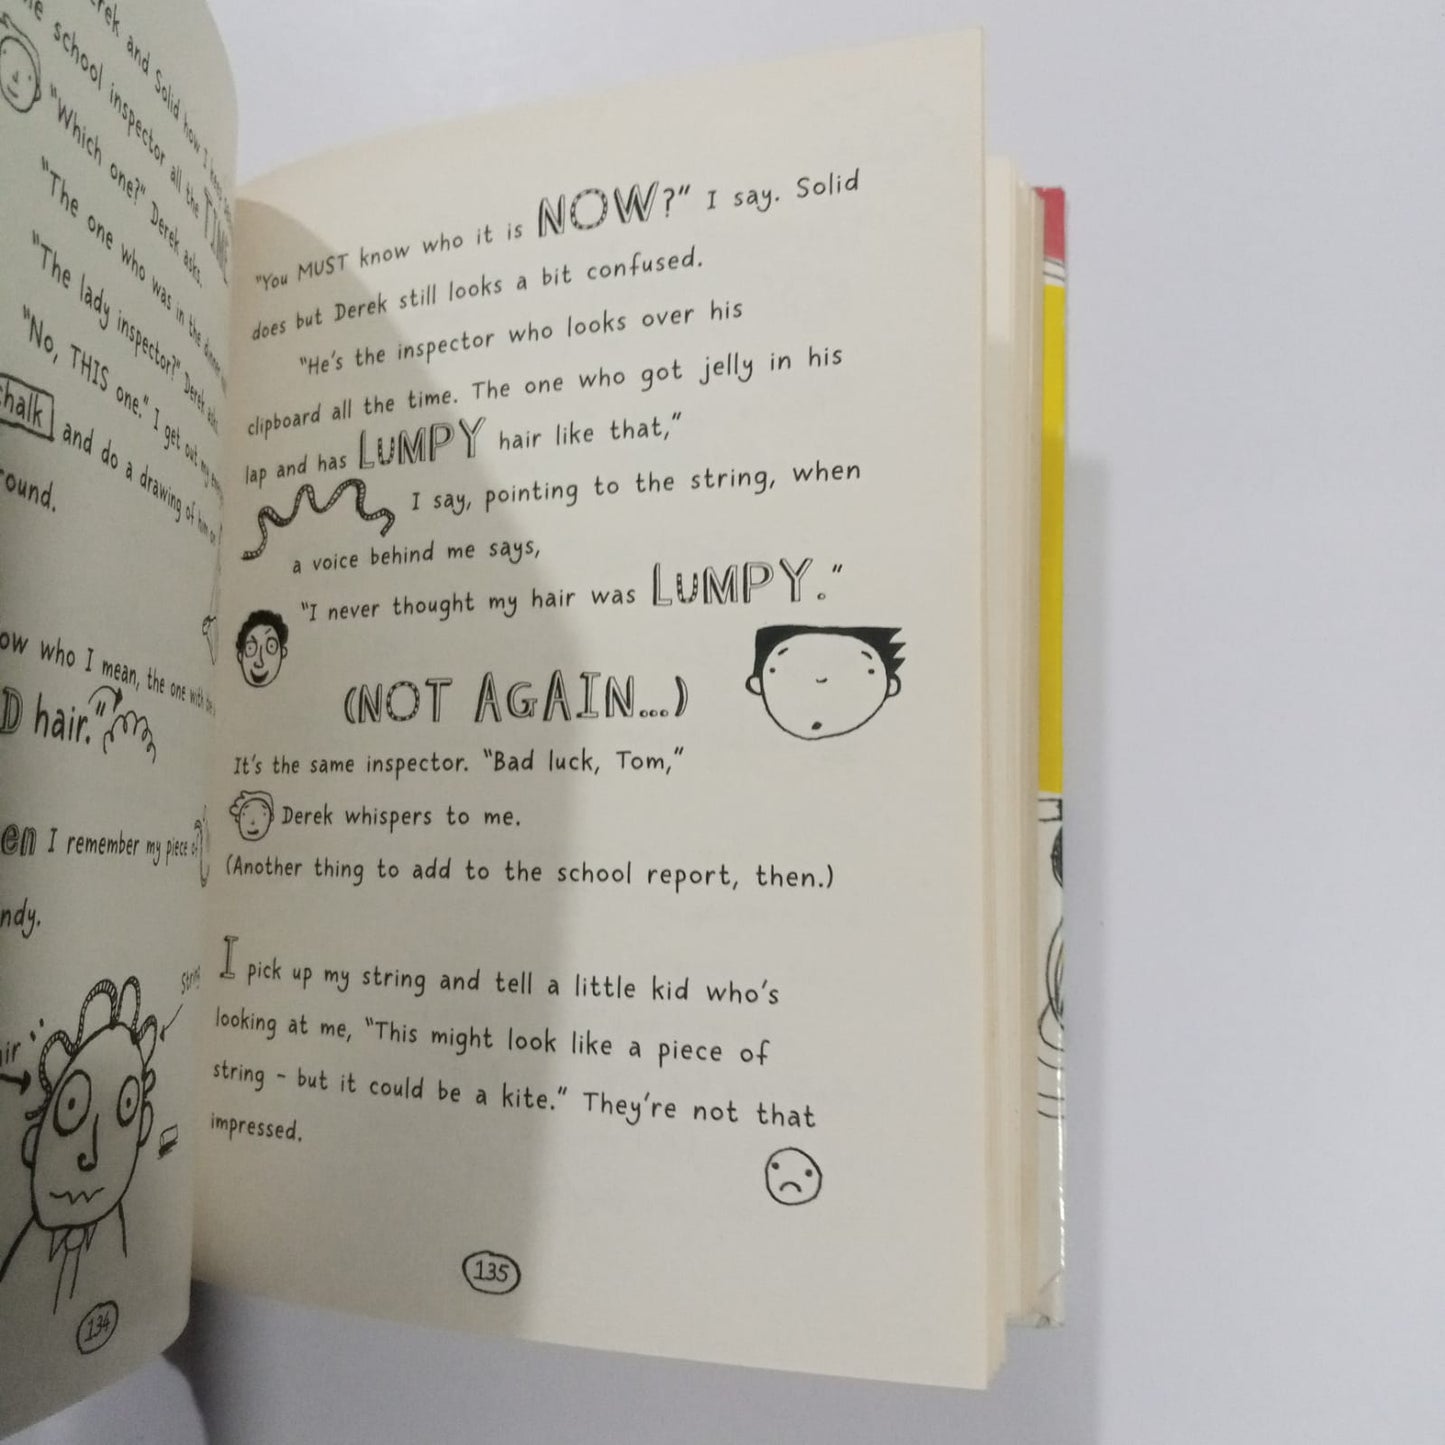 Derek and Solid how I
the school inspector all the TIME
"Which one?" Derek asks.
"The one who was in the dinner
"The lady inspector?" Derek asks.
"No, THIS one." I get out my
chalk and do a drawing of him on
round.
who I mean, the one with the
hair."
I remember my piece of
String
134
"You MUST know who it is NOW?" I say. Solid
does but Derek still looks a bit confused.
"He's the inspector who looks over his
clipboard all the time. The one who got jelly in his
lap and has LUMPY hair like that,"
I say, pointing to the string, when
a voice behind me says,
"I never thought my hair was LUMPY."
(NOT AGAIN...)
It's the same inspector. "Bad luck, Tom,"
Derek whispers to me.
(Another thing to add to the school report, then.)
I pick up my string and tell a little kid who's
looking at me, "This might look like a piece of
string - but it could be a kite." They're not that
impressed.
135